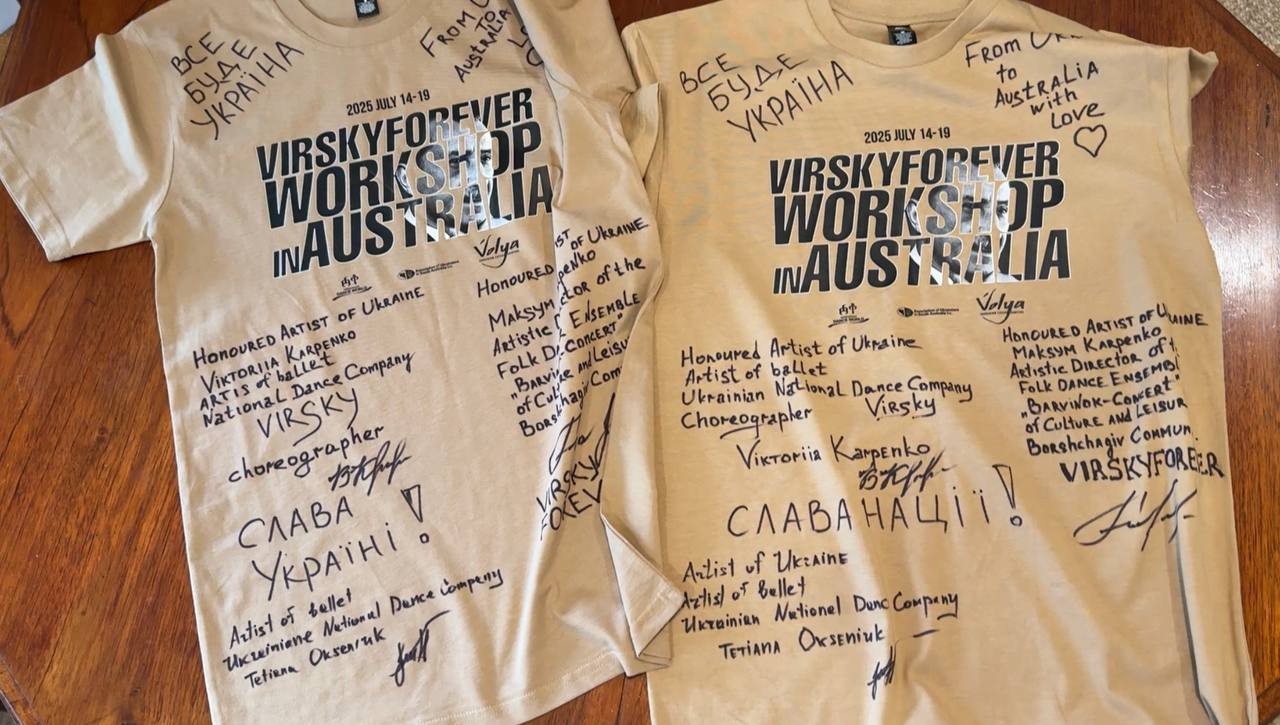 ВСЕ
БУДЕ
УКРАЇНА
FROM
TO
AUSTRALIA
2025 JULY 14-19
VIRSKYFOREVER
WORKSHOP
IN AUSTRALIA
Volya
Honoured Artist of Ukraine
Viktoriia Karpenko
ARTIS of ballet
National Dance Company
VIRSKY
choreographer
Honoured of Ukraine
Maksym
Artistic of the
Folk ENSEMBLE
CONCERT"
of and Leisu
СЛАВА
УКРАЇНІ!
Artist of ballet
Ukrainiane National Dance Company
Tetiana Okseniuk
ВСЕ
БУДЕ
УКРАЇНА
From
to
AUSTRALIA
with
Love
2025 JULY 14-19
VIRSKYFOREVER
WORKSHOP
IN AUSTRALIA
Volya
Honoured Artist of Ukraine
Artist of ballet
Ukrainian National Dance Company
Choreographer Virsky
Viktoriia Karpenko
Honoured Artist of Ukraine
Maksym Karpenko
Artistic Director of
Folk DANCE ENSEMBL
„BARVINOK-CONCERT"
of Culture and Leisur
Borshchagiv Commun
VIRSKYFOREVER
СЛАВА НАЦІЇ!
Artist of Ukraine
Artist of Ballet
Ukrainian National Danc Company
Tetiana Okseniuk